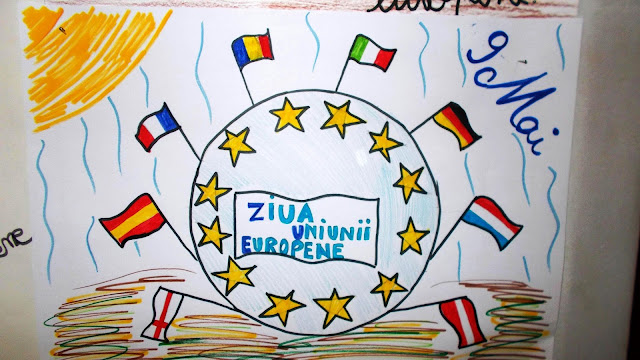 9 Mai
ZIUA
UNIUNII
EUROPENE